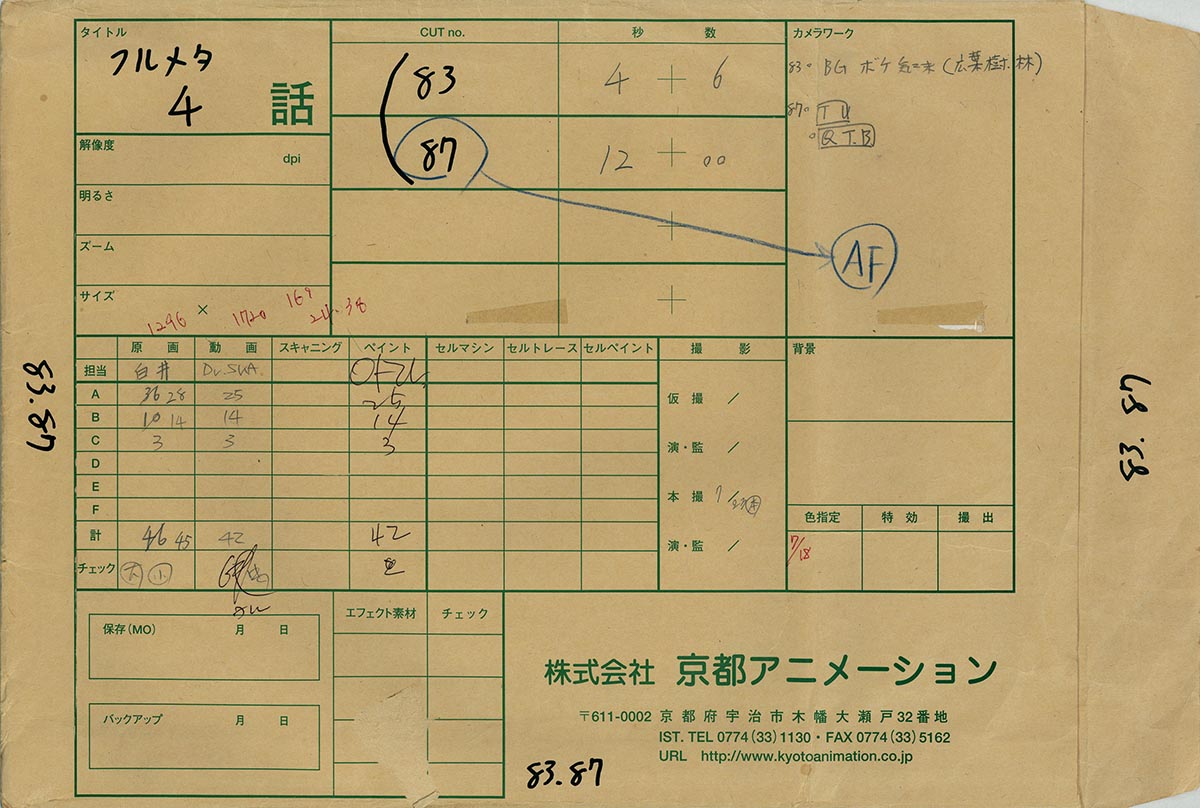 タイトル
フルメタ
4 話
CUT no.
秒 数
カメラワーク
83
4 + 6
83. BG ボケ (広葉樹.林)
87
12 + 00
87. T U
Q T.B
AF
+
+
解像度
dpi
明るさ
ズーム
サイズ
×
1296
1720
169
原 画
動 画
スキャニング
ペイント
セルマシン
セルトレース
セルペイント
撮 影
背景
担当
白井
A
36 28
25
25
B
10 14
14
14
C
3
3
3
D
E
F
計
46 45
42
42
チェック
大 小
仮 撮 /
演・監 /
本 撮 /
演・監 /
色指定
特 効
撮 出
7/18
保存(MO) 月 日
バックアップ 月 日
エフェクト素材
チェック
株式会社 京都アニメーション
〒611-0002 京都府宇治市木幡大瀬戸32番地
IST. TEL 0774(33)1130・FAX 0774(33)5162
URL http://www.kyotoanimation.co.jp
83.87
83.87
83.87